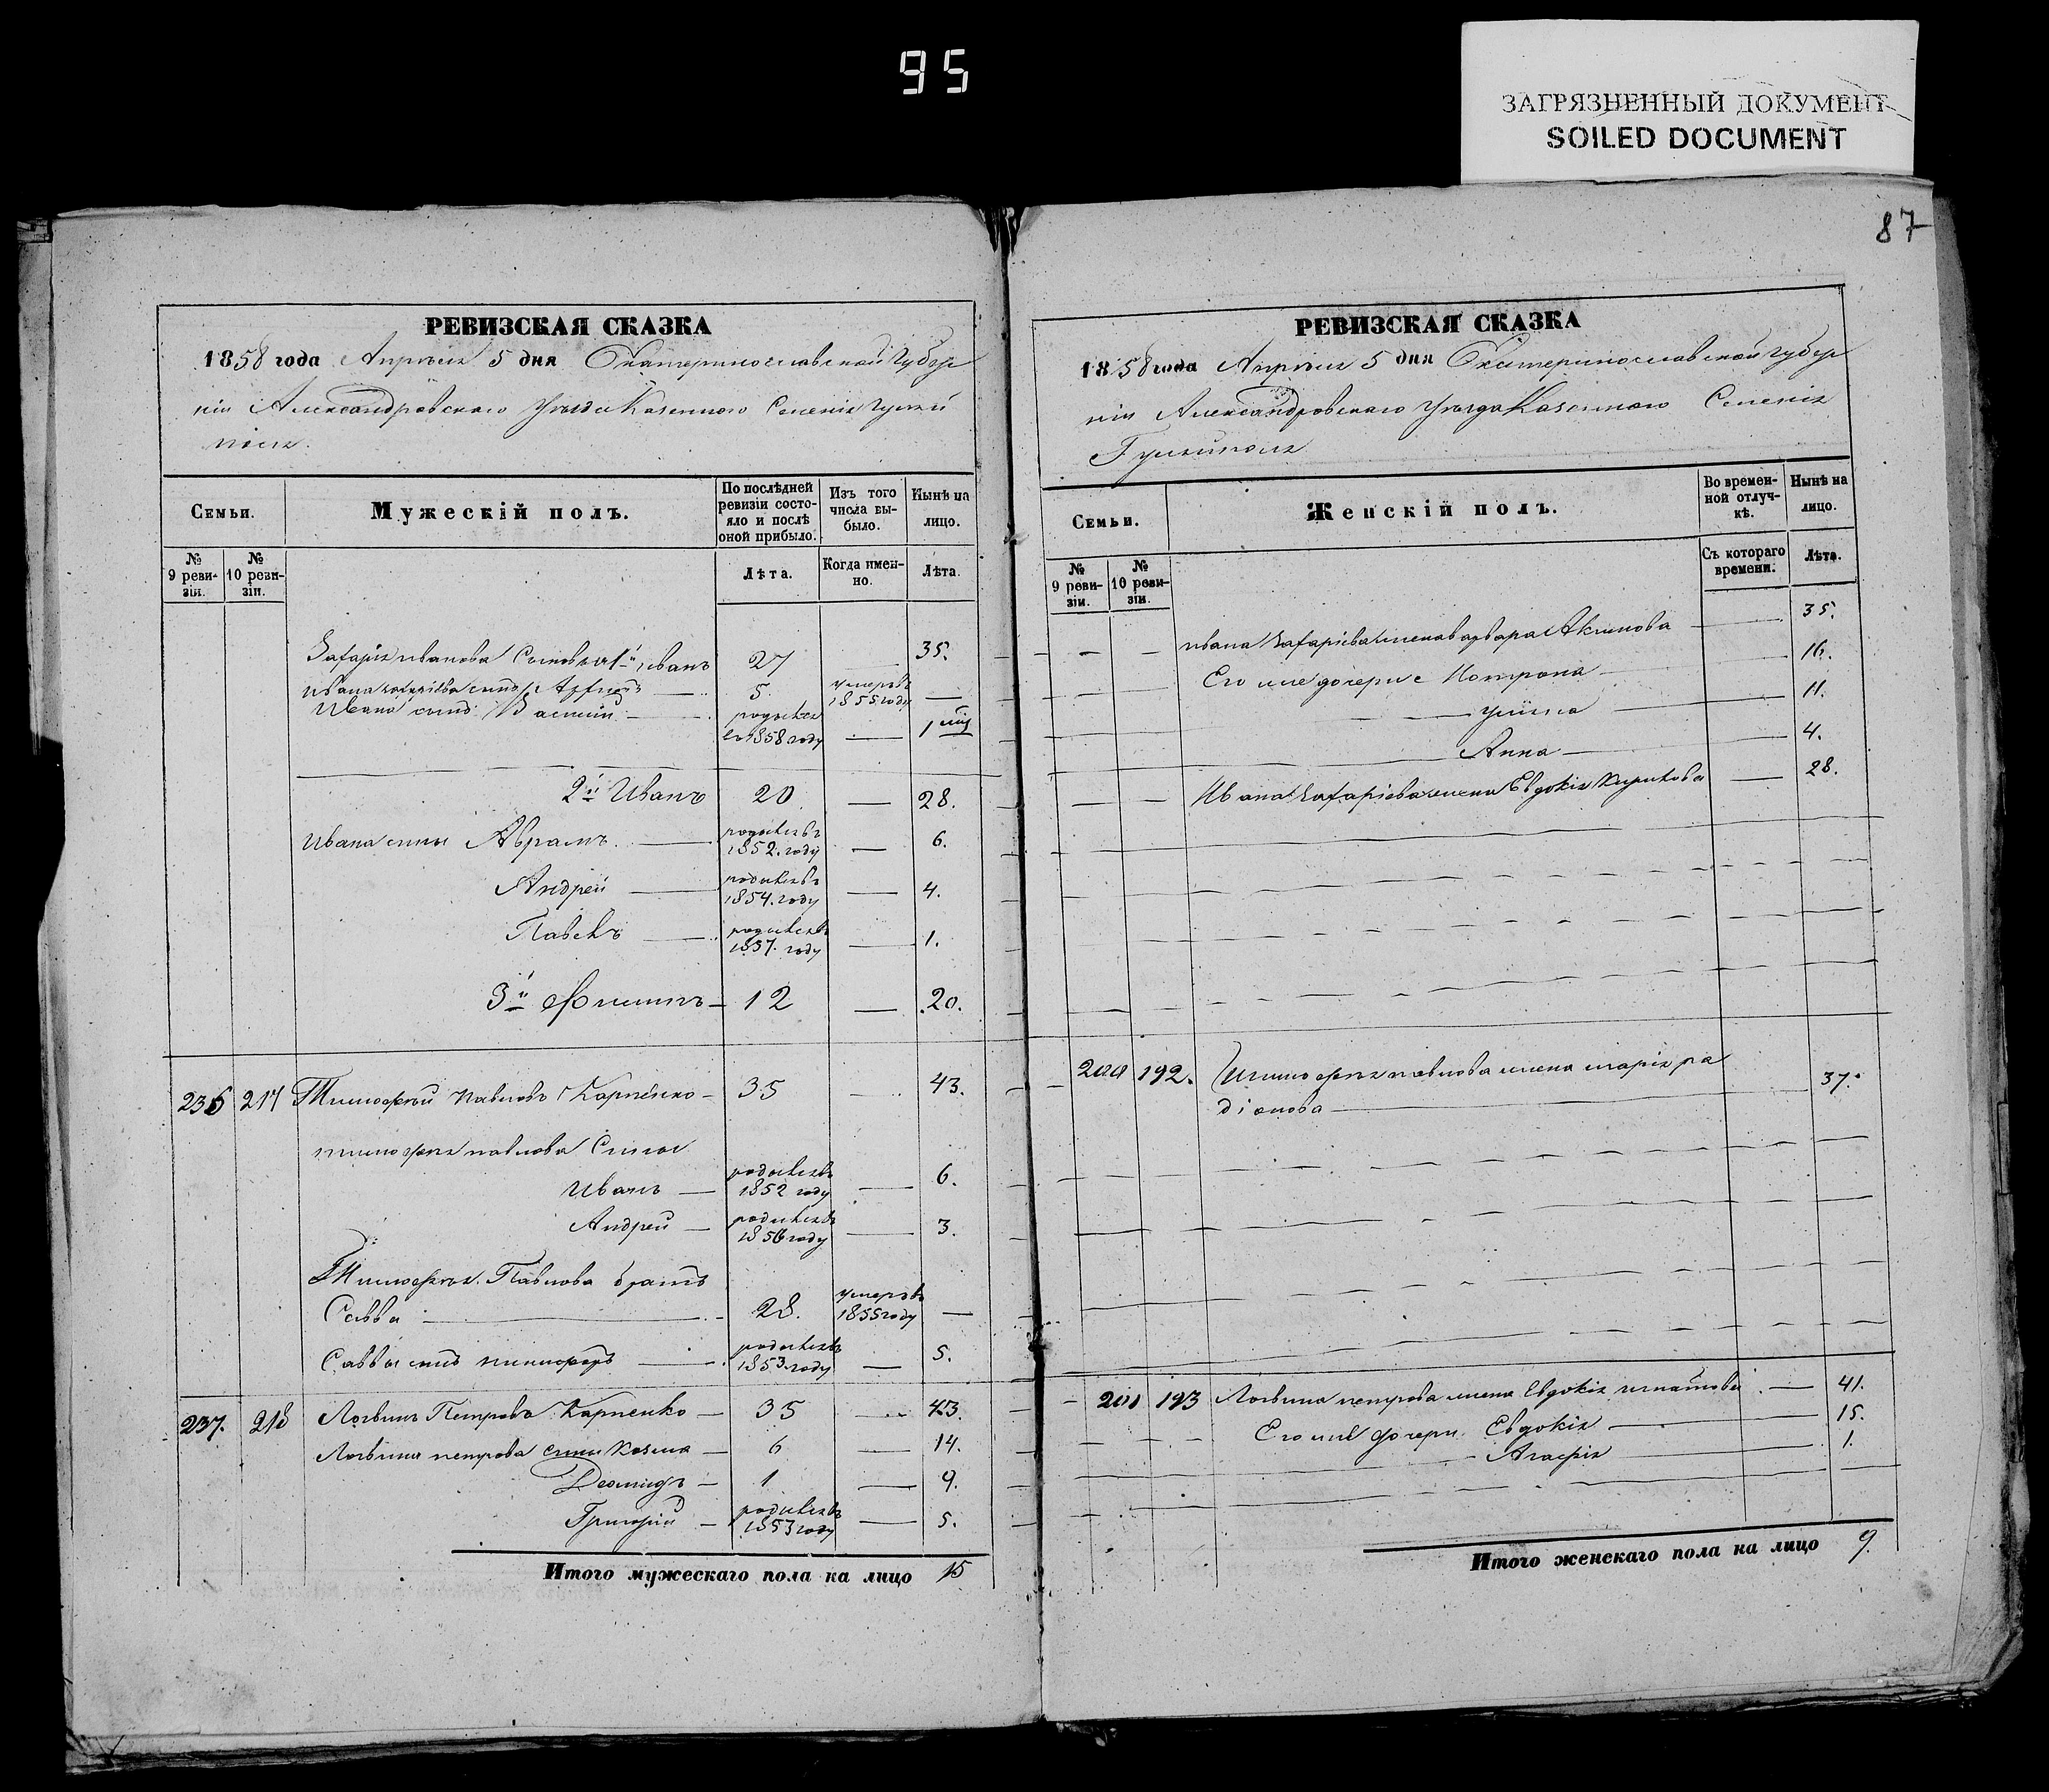 95
ЗАГРЯЗНЕННЫЙ ДОКУМЕНТ
SOILED DOCUMENT
РЕВИЗСКАЯ СКАЗКА
1858 года Апрѣля 5 дня Екатеринославской Губер
ніи Александровскаго Уѣзда Казеннаго Селенія Гуляй
поля.
Семьи.
Мужескій полъ.
По послѣдней ревизіи состояло и послѣ оной прибыло.
Изъ того числа выбыло.
Нынѣ на лицо.
№ 9 ревизіи.
№ 10 ревизіи.
Лѣта.
Когда именно.
Лѣта.
Захарія Иванова Сыновья 1й Иванъ 27 — 35.
Ивана Захаріева сынъ 5 умеръ въ 1855 году —
Ивана сынъ Василій — родился въ 1858 году — 1 мѣс
2й Иванъ 20 — 28.
Ивана сыны Аврамъ. — родился въ 1852. году — 6.
Андрей — родился въ 1854. году — 4.
Павелъ — родился въ 1857. году — 1.
3й Филипъ — 12 — 20.
236 217 Тимофѣй Павловъ Карпенко — 35 — 43.
Тимофея Павлова Сыны
Иванъ — родился въ 1852 году — 6.
Андрей — родился въ 1856 году — 3.
Тимофѣя Павлова братъ
Савва — 28. умеръ въ 1855 году —
Саввы сынъ Никифоръ — родился въ 1853 году — 5.
237. 218 Логвинъ Петровъ Карпенко — 35 — 43.
Логвина Петрова сыны Козма — 6 — 14.
Деомидъ — 1 — 9.
Григорій — родился въ 1853 году — 5.
Итого мужескаго пола на лицо 15
87
РЕВИЗСКАЯ СКАЗКА
1858 года Апрѣля 5 дня Екатеринославской Губер
ніи Александровскаго Уѣзда Казеннаго Селенія
Гуляйполя
Семьи.
Женскій полъ.
Во временной отлучкѣ.
Нынѣ на лицо.
№ 9 ревизіи.
№ 10 ревизіи.
Съ котораго времени.
Лѣта.
Ивана Захаріева жена Варвара Акимова — 35.
Его же дочери Мотрона — 16.
Ульяна — 11.
Анна — 4.
Ивана Захаріева жена Евдокія Кирикова — 28.
200 192. Тимофея Павлова жена Марія Ра
діонова — 37.
201 193 Логвина Петрова жена Евдокія Игнатова — 41.
Его же дочери Евдокія — 15.
Агафія — 1.
Итого женскаго пола на лицо 9.